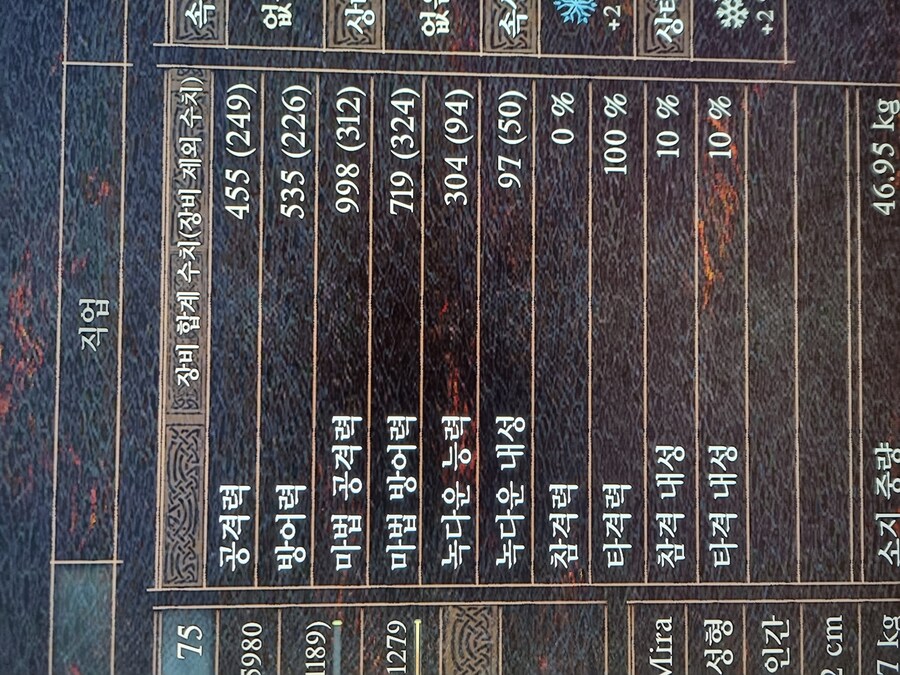 직업
장비 합계 수치(장비 제외 수치)
공격력 455 (249)
방어력 535 (226)
마법 공격력 998 (312)
마법 방어력 719 (324)
녹다운 능력 304 (94)
녹다운 내성 97 (50)
참격력 0 %
타격력 100 %
참격 내성 10 %
타격 내성 10 %
소지 중량 46.95 kg
75
1279
인간
+2
+2